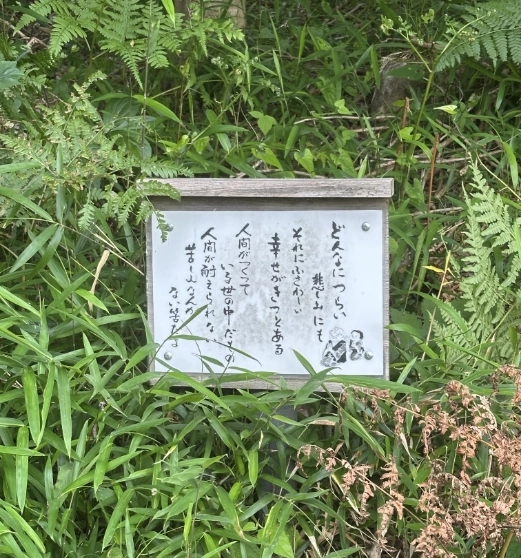 どんなにつらい
悲しみにも
それにふさわしい
幸せがきっとある
人間がつくって
いる世の中だもの
人間が耐えられない
苦しみなんか
ない筈だよ